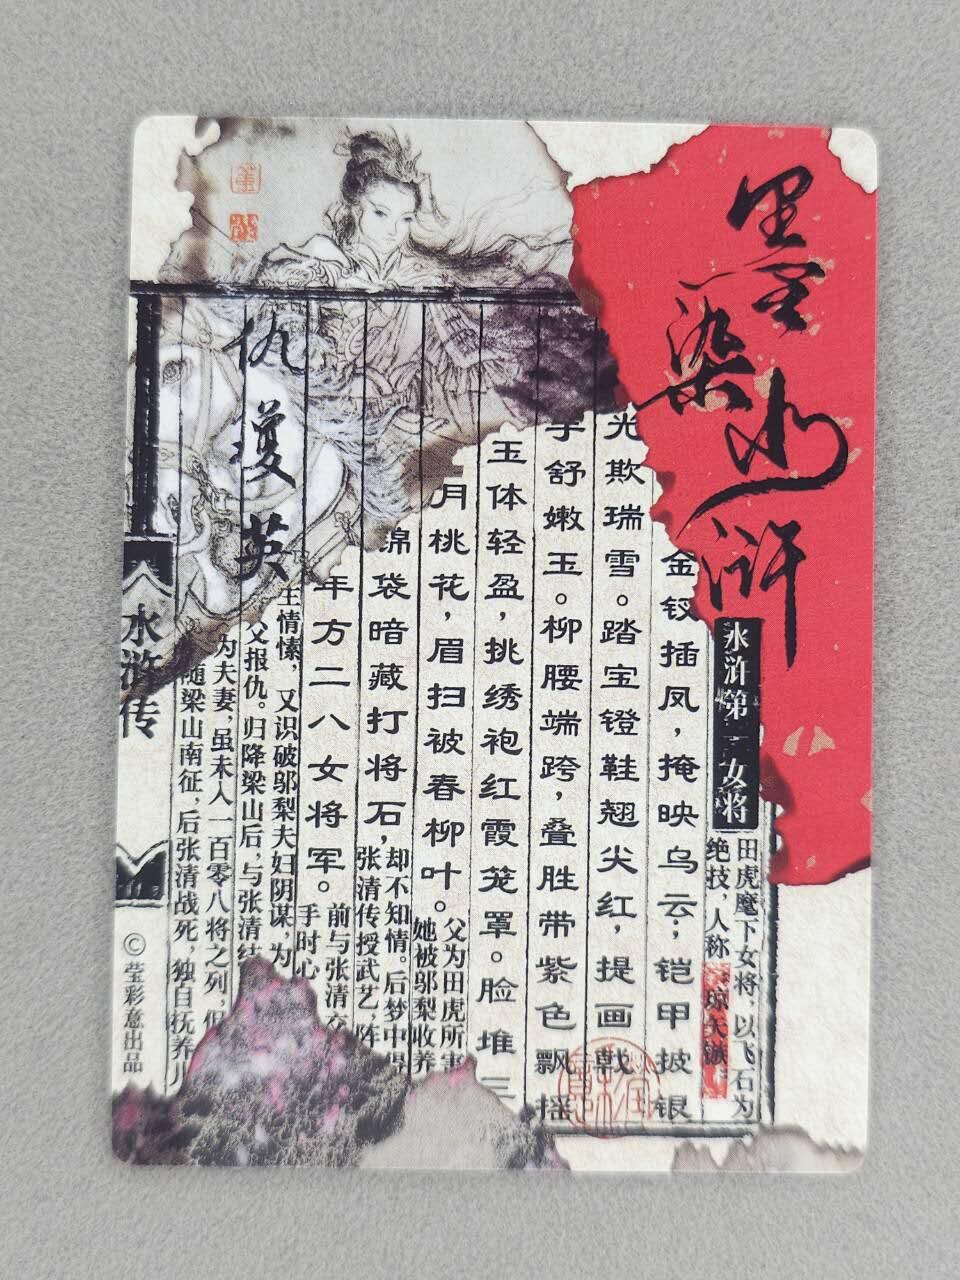 墨染水浒
水浒第一女将
田虎麾下女将，以飞石为
绝技，人称“琼矢镞”。
金钗插凤，掩映乌云；铠甲披银
光欺瑞雪。踏宝镫鞋翘尖红，提画戟
手舒嫩玉。柳腰端跨，叠胜带紫色飘摇
玉体轻盈，挑绣袍红霞笼罩。脸堆三
月桃花，眉扫被春柳叶。
父为田虎所害
她被邬梨收养
锦袋暗藏打将石，
却不知情。后梦中得
张清传授武艺，阵
年方二八女将军。
前与张清交
手时心
生情愫，又识破邬梨夫妇阴谋，为
父报仇。归降梁山后，与张清结
为夫妻，虽未入一百零八将之列，但
随梁山南征，后张清战死，独自抚养儿
仇瓊英
水浒传
©莹彩意出品